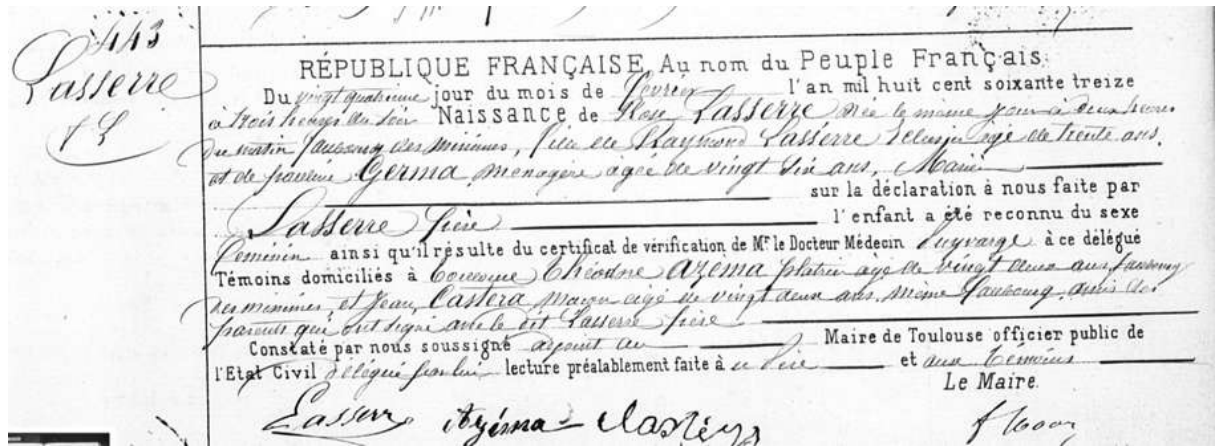 443
Lasserre
RÉPUBLIQUE FRANÇAISE, Au nom du Peuple Français.
Du vingt quatrieme jour du mois de fevrier l'an mil huit cent soixante treize
à trois heures du soir Naissance de Rose Lasserre née le même jour à deux heures
du matin faubourg des minimes, fille de Raymond Lasserre agé de trente ans,
et de Germa menagere agée de vingt six ans, Mariés
sur la déclaration à nous faite par
Lasserre père l'enfant a été reconnu du sexe
feminin ainsi qu'il résulte du certificat de vérification de Mr le Docteur Médecin à ce délégué
Témoins domiciliés à Toulouse Théodore Azéma platrier agé de vingt deux ans, faubourg
des minimes, et Jean Castera maçon agé de vingt deux ans, même faubourg, amis des
parents qui ont signé avec le dit Lasserre père
Constaté par nous soussigné adjoint au Maire de Toulouse officier public de
l'Etat Civil délégué par lui lecture préalablement faite à père et aux témoins
Le Maire.
Lasserre Azéma Castéra